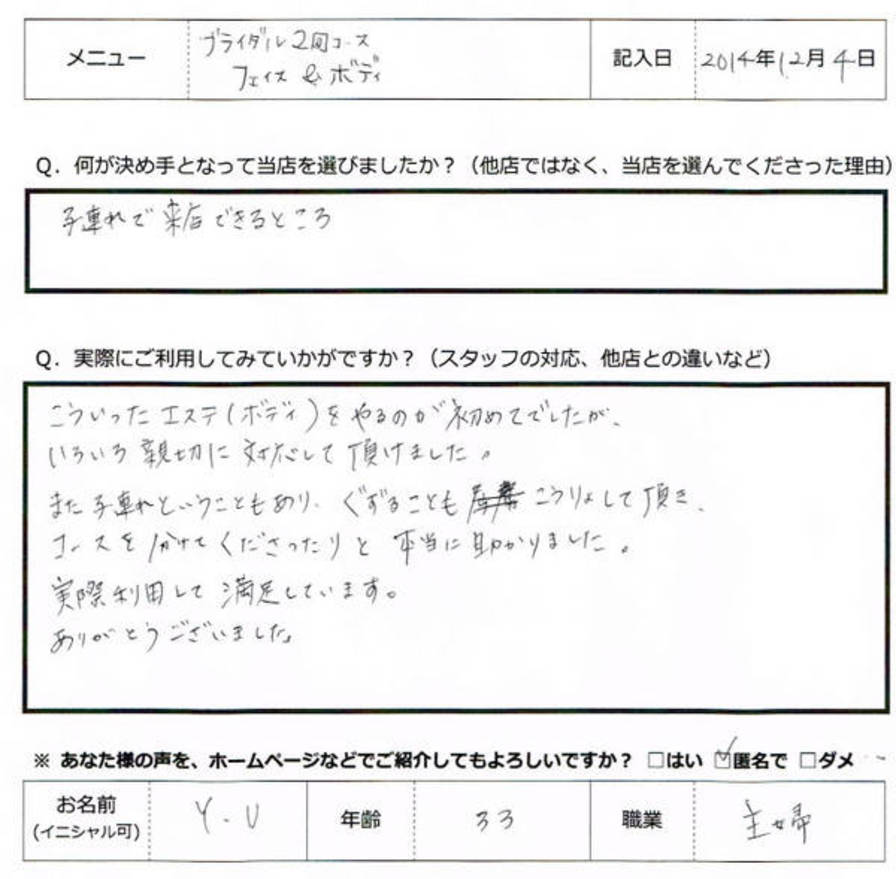 メニュー ブライダル2回コース 記入日 2014年12月4日
フェイス & ボディ
Q. 何が決め手となって当店を選びましたか?(他店ではなく、当店を選んでくださった理由)
子連れで来店できるところ
Q. 実際にご利用してみていかがですか?(スタッフの対応、他店との違いなど)
こういったエステ(ボディ)をやるのが初めてでしたが、
いろいろ親切に対応して頂けました。
また子連れということもあり、ぐずることもこうりょして頂き、
コースを分けてくださったりと本当に助かりました。
実際利用して満足しています。
ありがとうございました。
※ あなた様の声を、ホームページなどでご紹介してもよろしいですか? □はい ☑匿名で □ダメ
お名前 Y.U 年齢 33 職業 主婦
(イニシャル可)